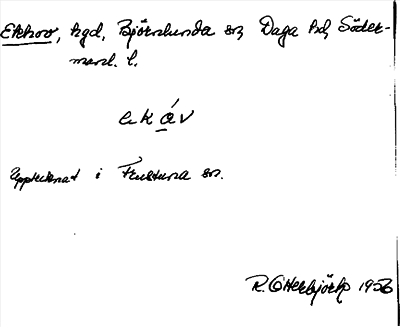 Ekhov, hgd, Björnlunda sn, Daga hd, Söder-
manl. l.
ekáv
Upptecknat i Frustuna sn.
R. Otterbjörk 1956